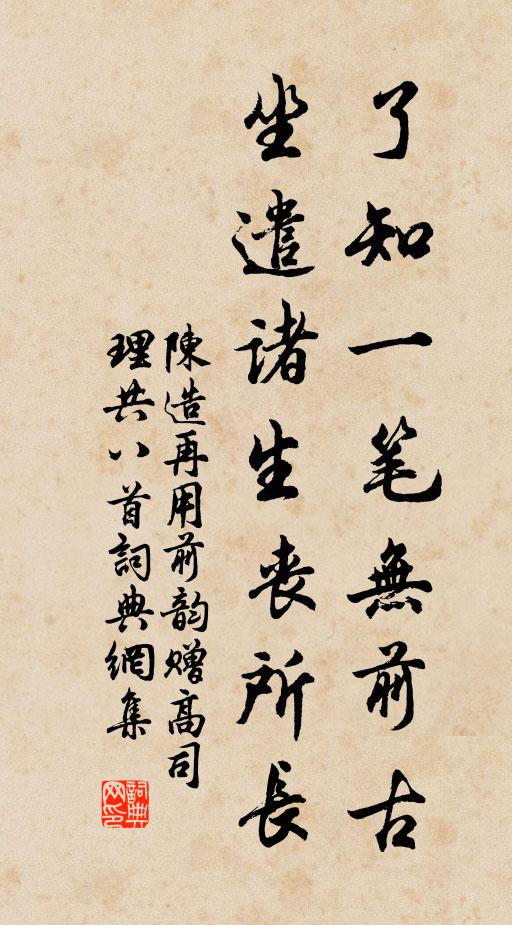 了知一笔無前古
坐遣諸生丧所長
陳造再用前韵赠高司
理共八首詞典網集
詞典
网印